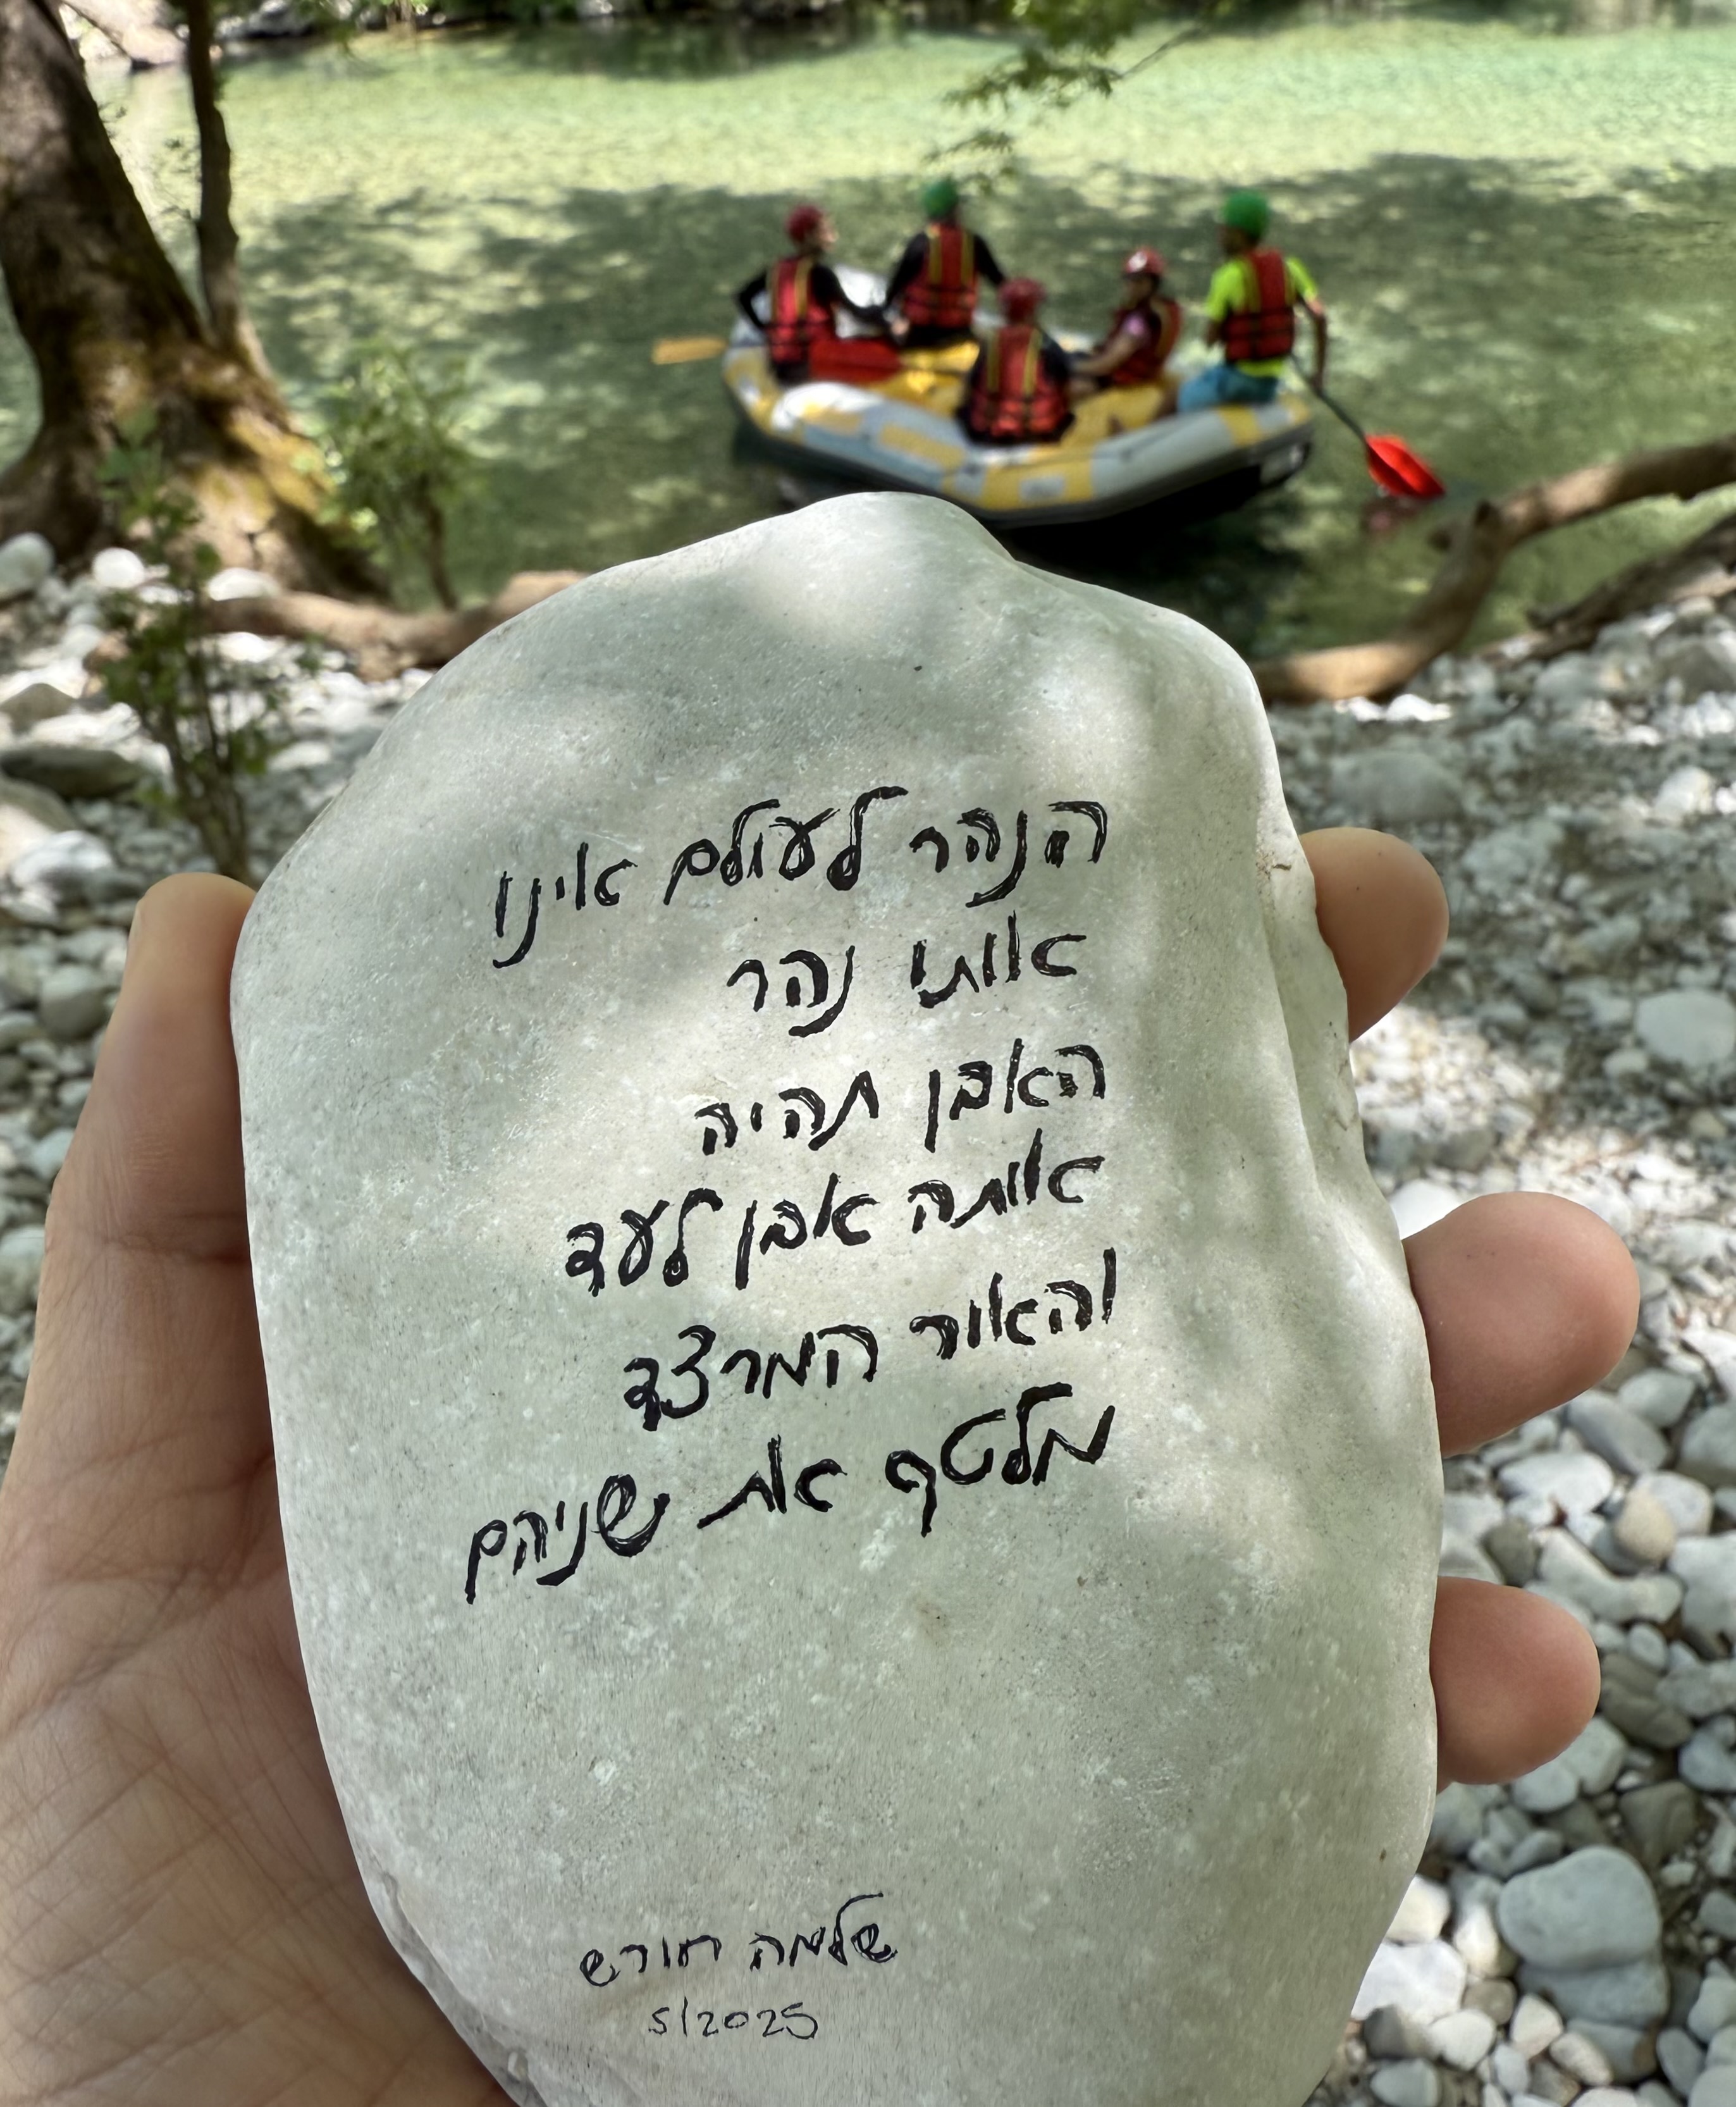 הנהר לעולם אינו
אותו נהר
האבן תהיה
אותה אבן לעד
והאור המרצד
מלטף את שניהם
שלמה חורש
5/2025